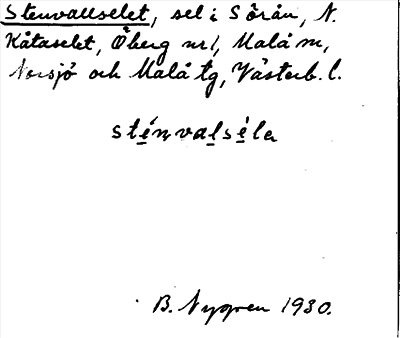 Stenvallselet, sel i Sörån, N.
Kåtaselet, Öberg nr 1, Malå sn,
Norsjö och Malå tg, Västerb. l.
sténvalséla
B. Nygren 1930.